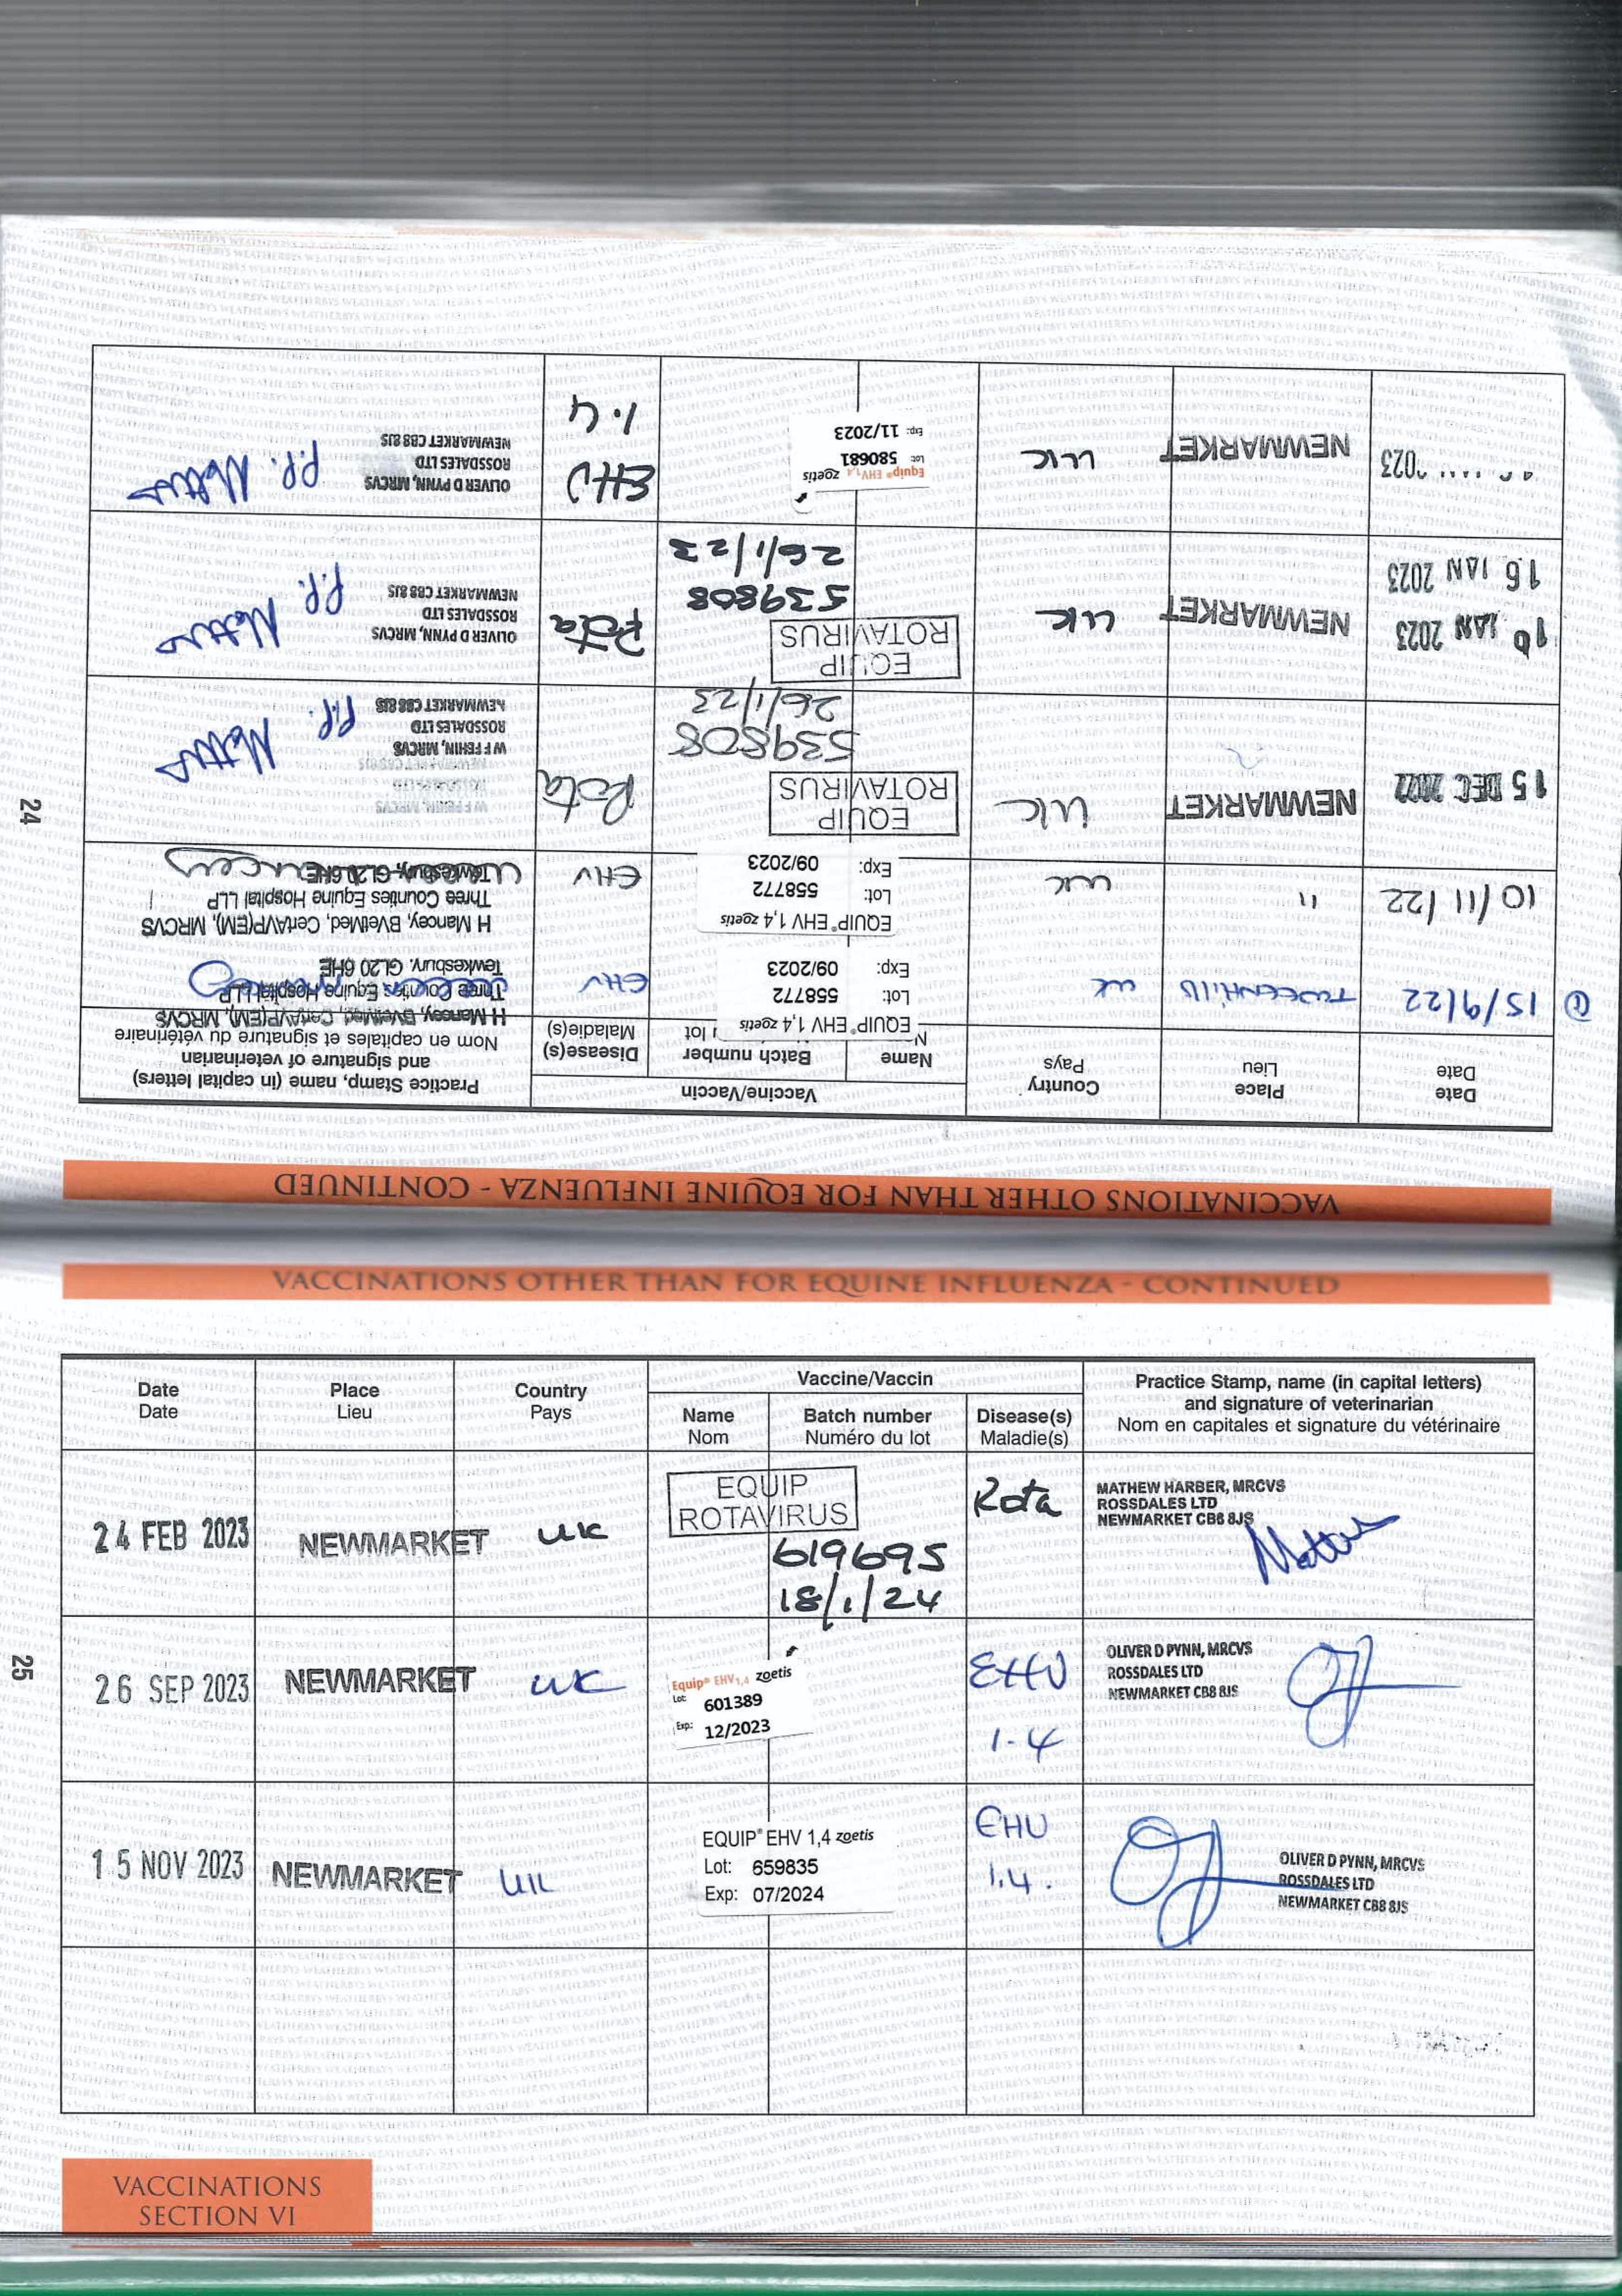 VACCINATIONS OTHER THAN FOR EQUINE INFLUENZA - CONTINUED
Date
Date
Place
Lieu
Country
Pays
Vaccine/Vaccin
Name
Batch number
lot
Disease(s)
Maladie(s)
Practice Stamp, name (in capital letters)
and signature of veterinarian
Nom en capitales et signature du vétérinaire
15/9/22
UK
EQUIP® EHV 1,4 zoetis
Lot: 558772
Exp: 09/2023
EHV
H Mancey, BVetMed, CertAVP(EM), MRCVS
Three Counties Equine Hospital LLP
Tewkesbury, GL20 6HE
10/11/22
"
UK
EQUIP® EHV 1,4 zoetis
Lot: 558772
Exp: 09/2023
EHV
H Mancey, BVetMed, CertAVP(EM), MRCVS
Three Counties Equine Hospital LLP
Tewkesbury, GL20 6HE
15 DEC 2022
NEWMARKET
UK
EQUIP
ROTAVIRUS
539808
26/1/23
Rota
W F FEHIN, MRCVS
ROSSDALES LTD
NEWMARKET CB8 8JS
P.P.
16 JAN 2023
16 JAN 2023
NEWMARKET
UK
EQUIP
ROTAVIRUS
539808
26/1/23
Rota
OLIVER D PYNN, MRCVS
ROSSDALES LTD
NEWMARKET CB8 8JS
P.P.
NEWMARKET
UK
Equip® EHV 1,4 zoetis
Lot: 580681
Exp: 11/2023
EHV
1.4
OLIVER D PYNN, MRCVS
ROSSDALES LTD
NEWMARKET CB8 8JS
P.P.
24
VACCINATIONS OTHER THAN FOR EQUINE INFLUENZA - CONTINUED
Date
Date
Place
Lieu
Country
Pays
Vaccine/Vaccin
Name
Nom
Batch number
Numéro du lot
Disease(s)
Maladie(s)
Practice Stamp, name (in capital letters)
and signature of veterinarian
Nom en capitales et signature du vétérinaire
24 FEB 2023
NEWMARKET
UK
EQUIP
ROTAVIRUS
619695
18/1/24
Rota
MATHEW HARBER, MRCVS
ROSSDALES LTD
NEWMARKET CB8 8JS
26 SEP 2023
NEWMARKET
UK
Equip® EHV 1,4 zoetis
Lot: 601389
Exp: 12/2023
EHV
1.4
OLIVER D PYNN, MRCVS
ROSSDALES LTD
NEWMARKET CB8 8JS
15 NOV 2023
NEWMARKET
UK
EQUIP® EHV 1,4 zoetis
Lot: 659835
Exp: 07/2024
EHV
1.4.
OLIVER D PYNN, MRCVS
ROSSDALES LTD
NEWMARKET CB8 8JS
25
VACCINATIONS
SECTION VI